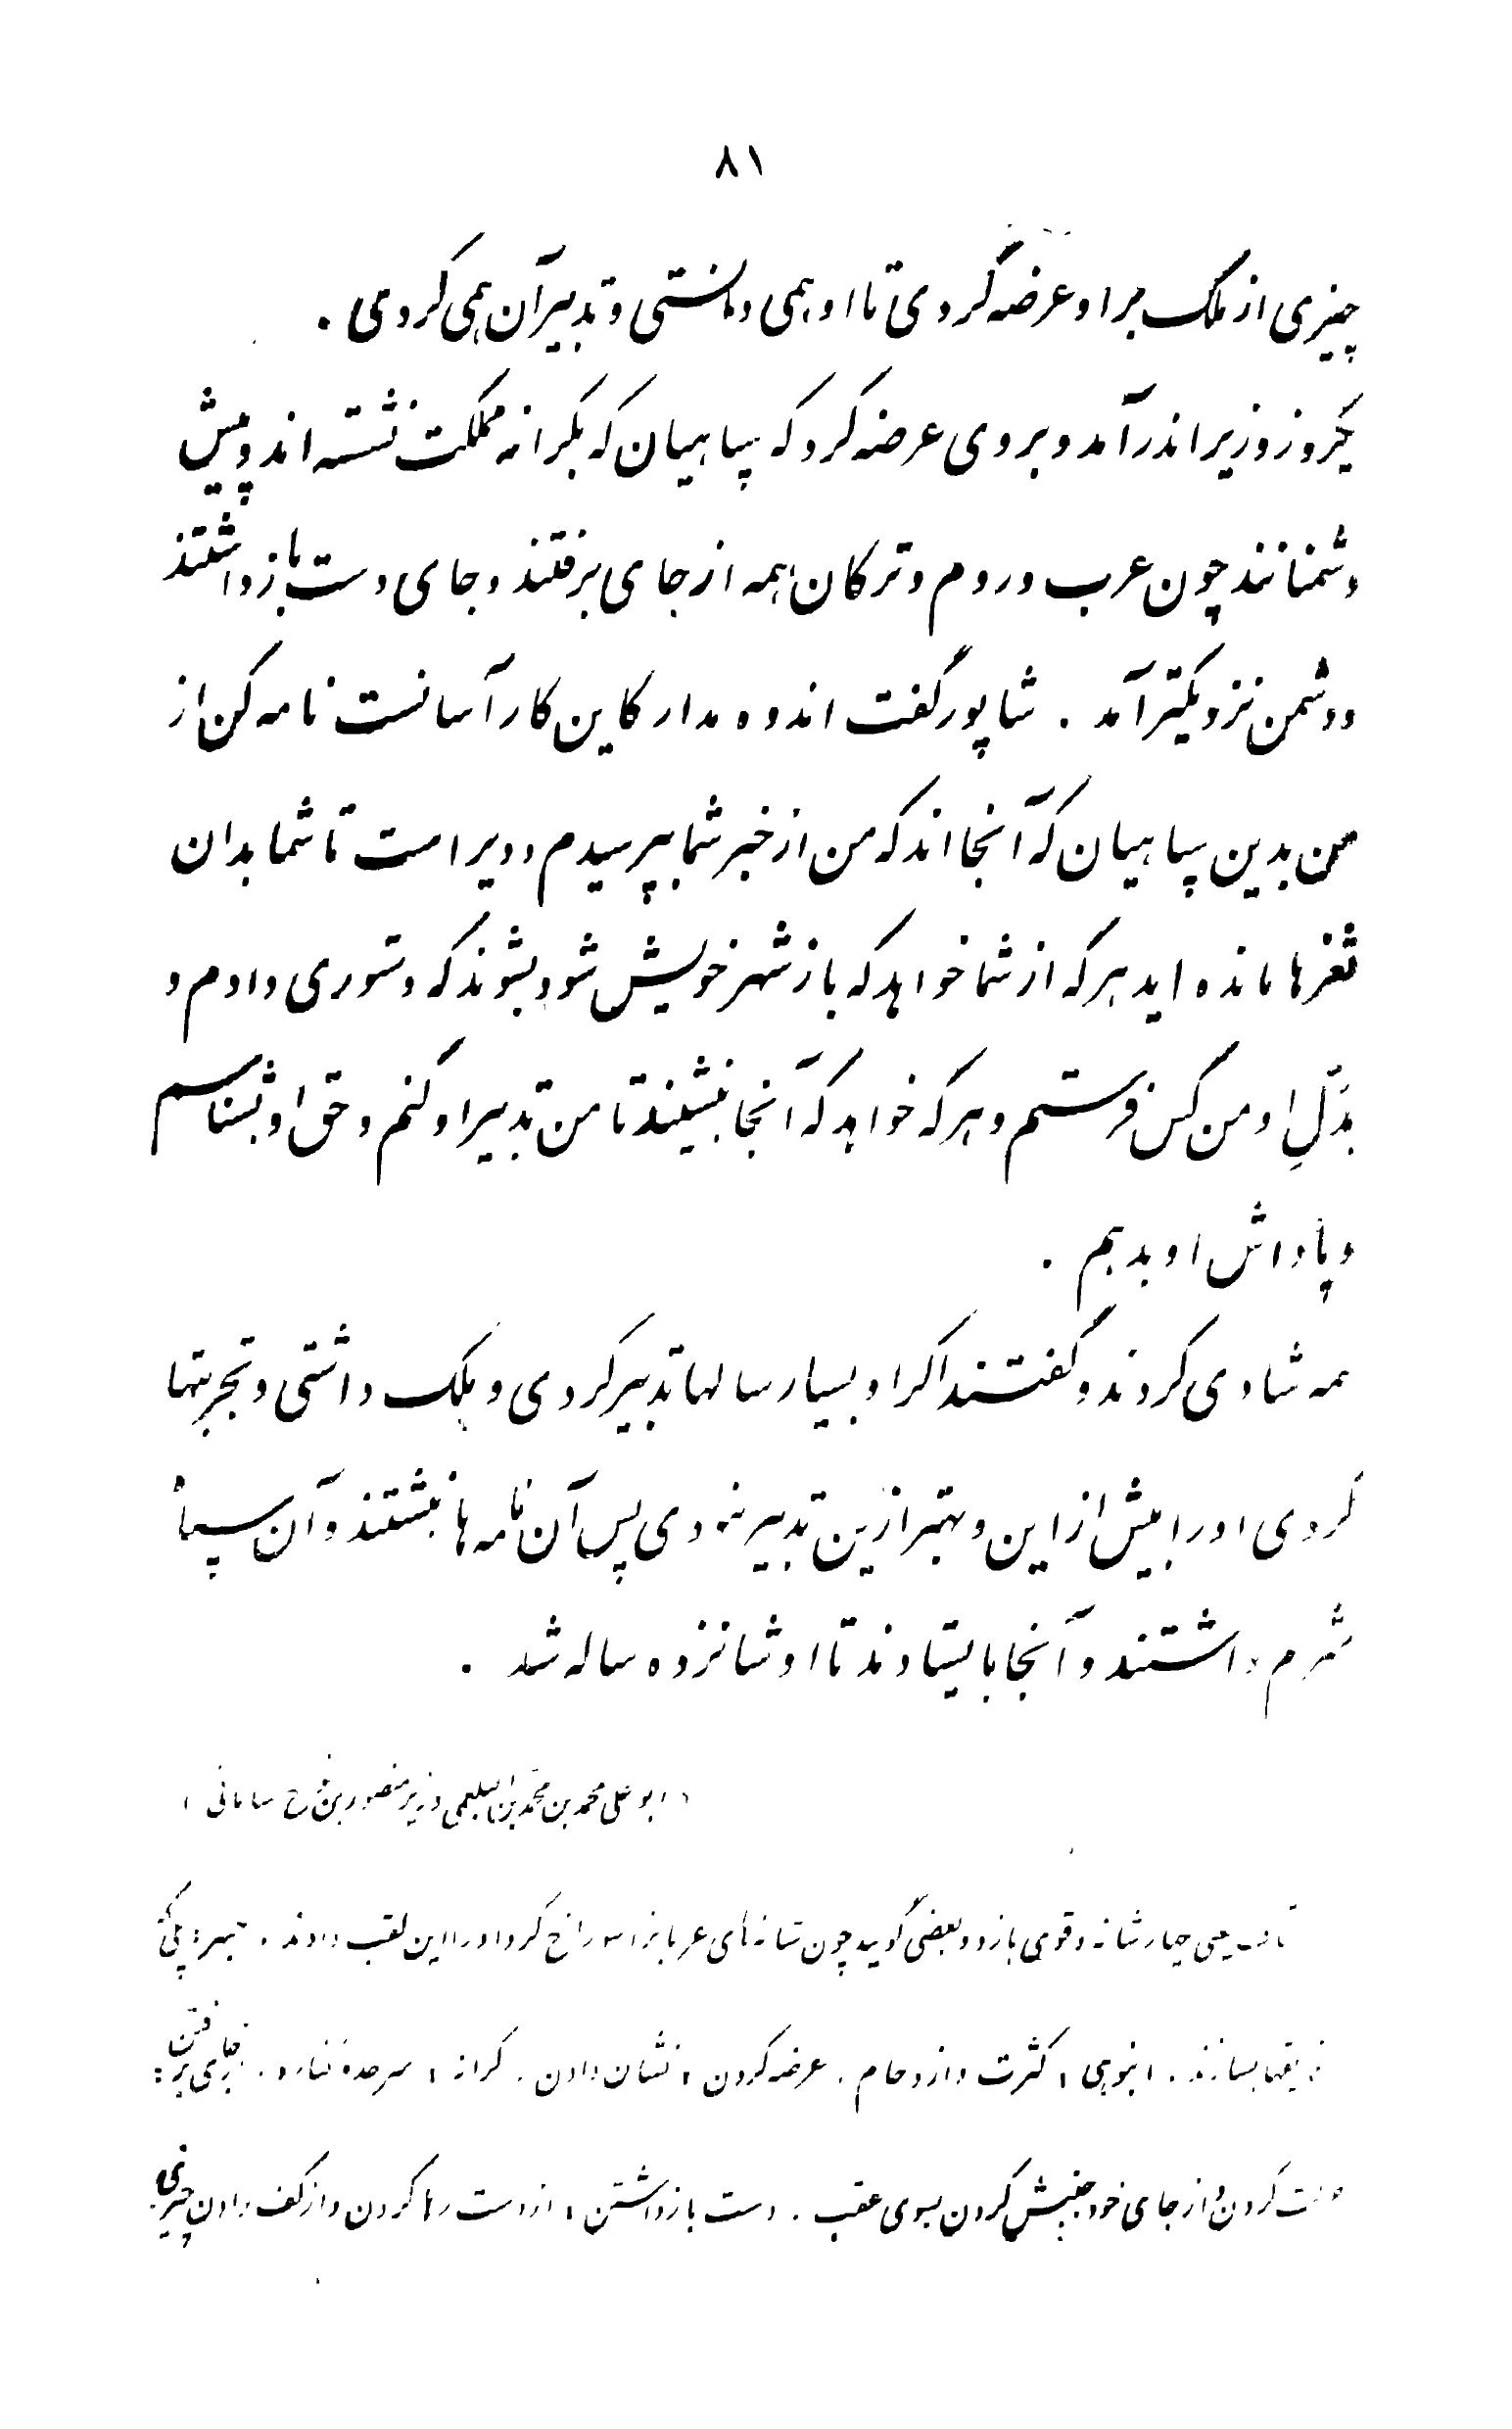 ۸۱
چیزی از ملک بر او عرضه کردی تا او همی دانستی و تدبیر آن همی کردی .
یکروز وزیر اندر آمد و بروی عرضه کرد که سپاهیان که بکرانه مملکت نشسته اند و پیش
دشمنانند چون عرب و روم و ترکان همه از جای برفتند و جای دست بازداشتند
و دشمن نزدیکتر آمد . شاپور گفت اندوه مدار کاین کار آسانست نامه کن از
من بدین سپاهیان که آنجا اند که من از خبر شما بپرسیدم و دیر است تا شما بدان
ثغرها مانده اید هر که از شما خواهد که باز شهر خویش شود بشوند که دستوری دادم و
بدَلِ او من کس فرستم و هر که خواهد که آنجا بنشیند تا من تدبیر او کنم و حق او بشناسم
و پاداش او بدهم .
همه شادی کردند و گفتند اگر او بسیار سالها تدبیر کردی و ملک داشتی و تجربتها
کردی او را بیش از این و بهتر ازین تدبیر نبودی پس آن نامه ها بنبشتند و آن سپاه
شرم داشتند و آنجا بایستادند تا او شانزده ساله شد .
( ابوعلی محمد بن محمد بن البلعمی وزیر منصور بن نوح سامانی )
یعنی چهارشانه و قوی بازو و بعضی گویند چون شانه های عربانرا سوراخ کرد او را این لقب دادند .
بسازند . انبوهی : کثرت و ازدحام . عرضه کردن : نشان دادن . کرانه : سرحد و کناره . از جای برفتن :
حرکت کردن و از جای خود جنبش کردن بسوی عقب . دست بازداشتن : از دست رها کردن و از کف دادن چیزی .